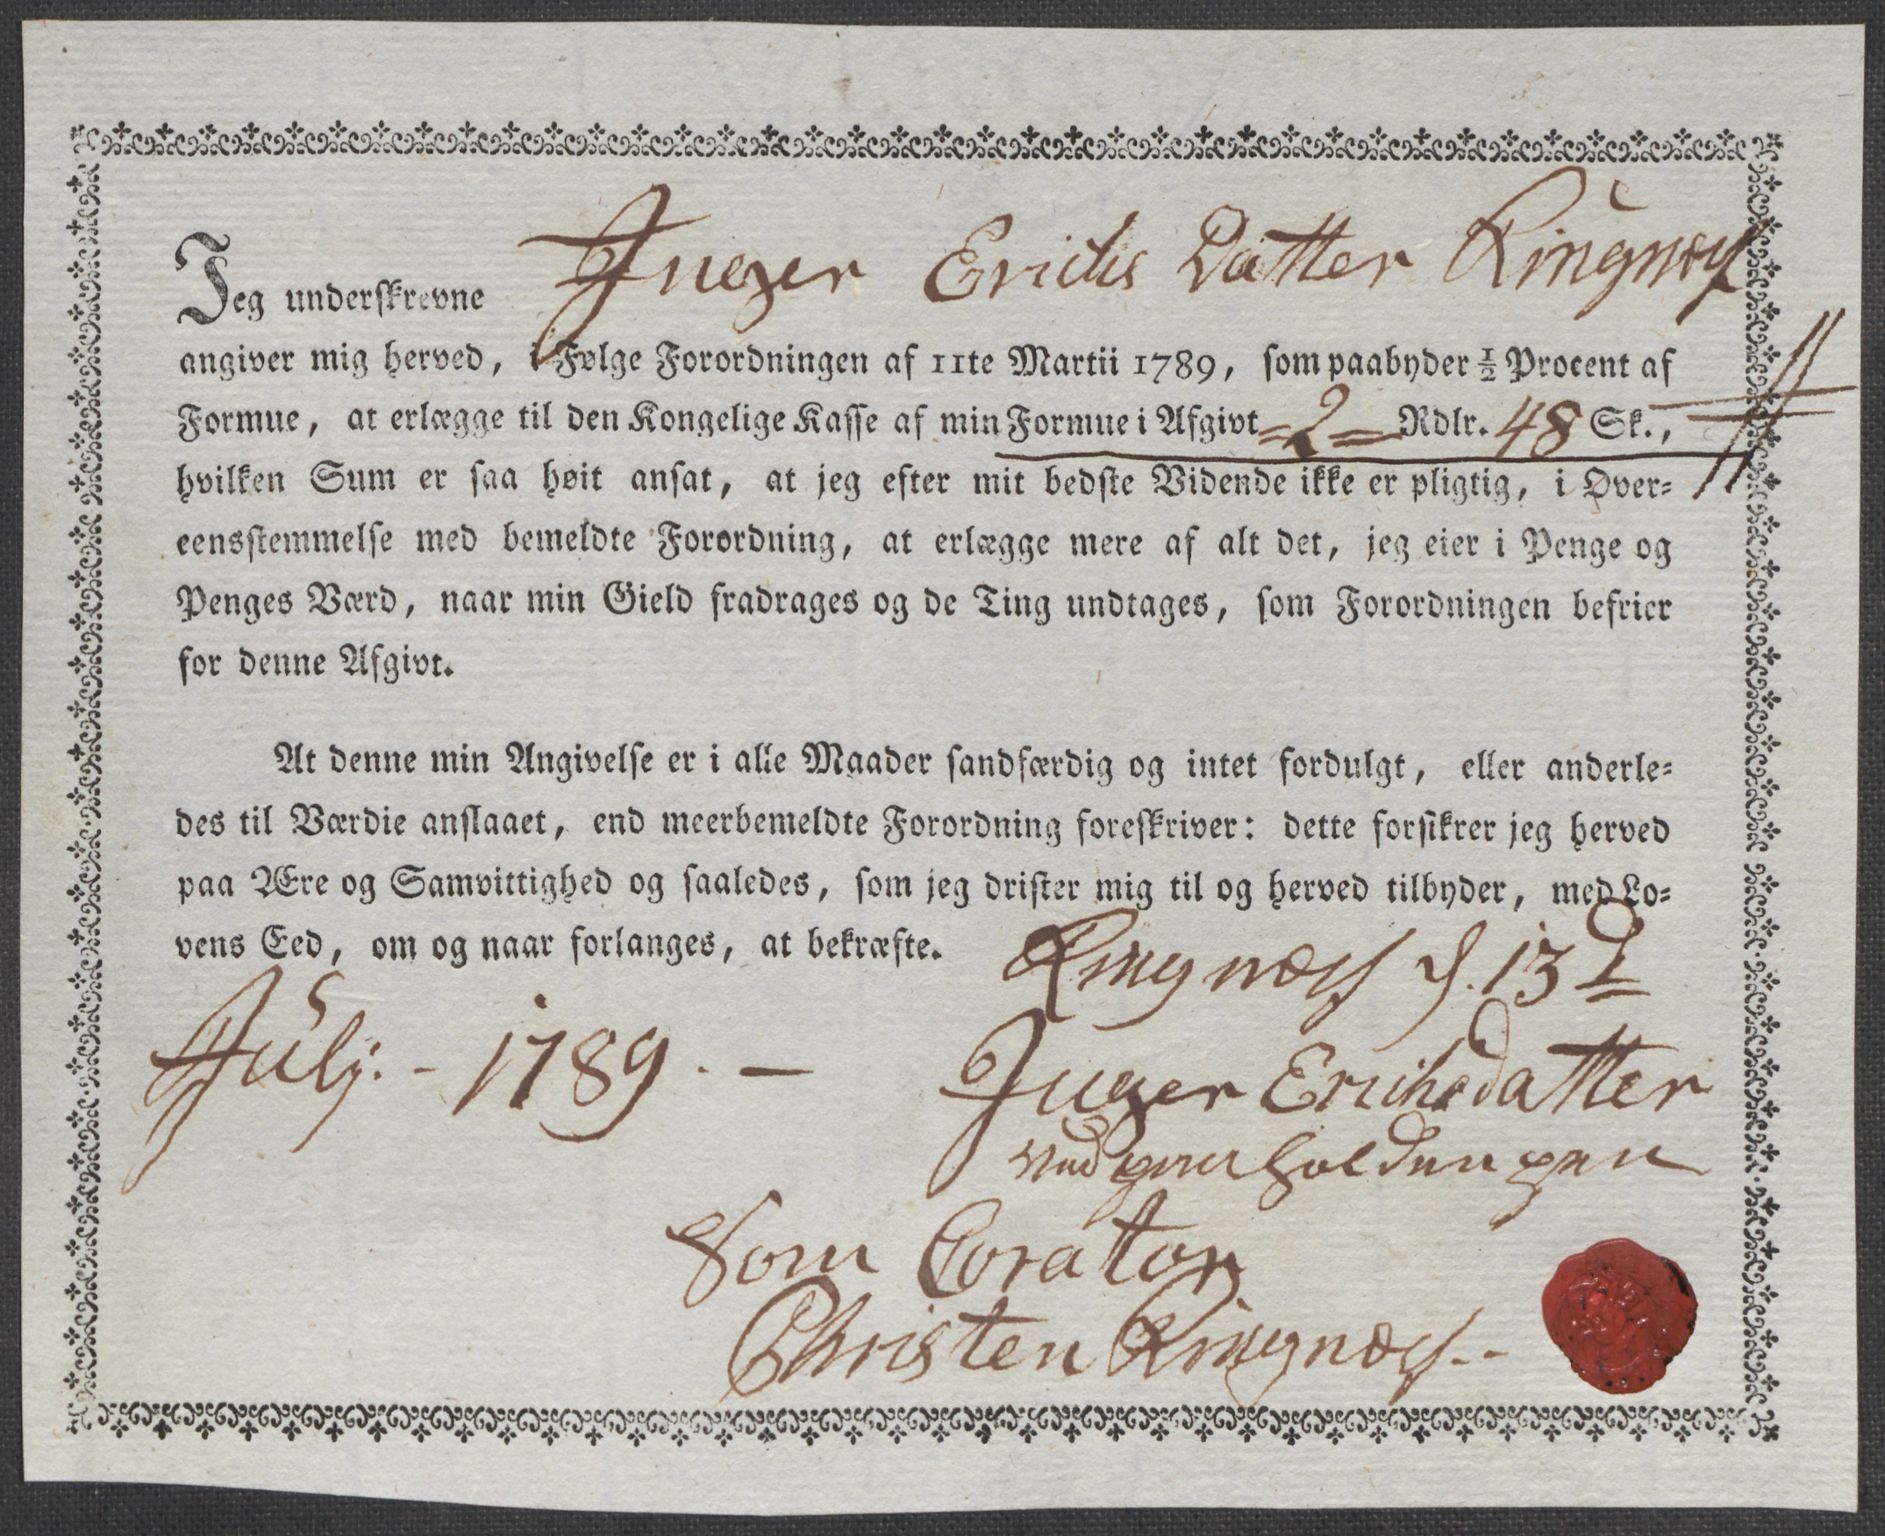 Jeg underskrevne Inger Erichs Datter Ringnæs
angiver mig herved, i Følge Forordningen af 11te Martii 1789, som paabyder ½ Procent af
Formue, at erlægge til den Kongelige Kasse af min Formue i Afgivt =2= Rdlr. 48 Sk.,
hvilken Sum er saa høit ansat, at jeg efter mit bedste Vidende ikke er pligtig, i Over=
eensstemmelse med bemeldte Forordning, at erlægge mere af alt det, jeg eier i Penge og
Penges Værd, naar min Gield fradrages og de Ting undtages, som Forordningen befrier
for denne Afgivt.
At denne min Angivelse er i alle Maader sandfærdig og intet fordulgt, eller anderle=
des til Værdie anslaaet, end meerbemeldte Forordning foreskriver: dette forsikrer jeg herved
paa Ære og Samvittighed og saaledes, som jeg drister mig til og herved tilbyder, med Lo=
vens Eed, om og naar forlanges, at bekræfte. Ringnæss d. 13d
July: - 1789. —
Inger Erichsdatter
med
Som Corator
Christen Ringnæss.-